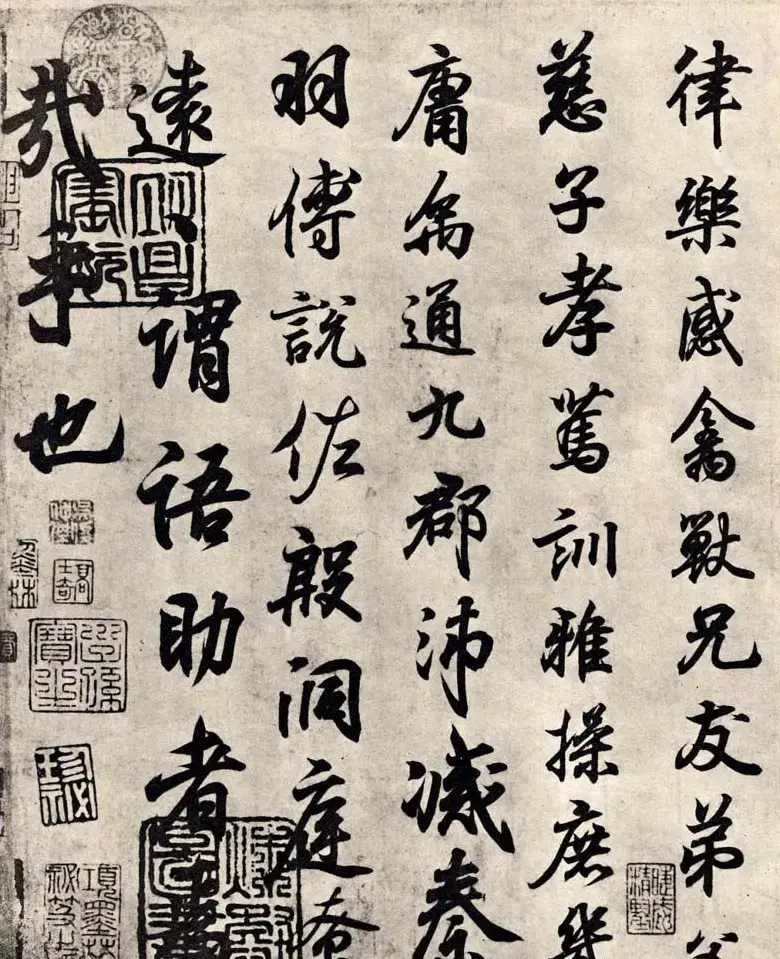 律樂感禽獸兄友弟
慈子孝篤訓雅操庶幾
庸通九郡沛滅秦
羽傅說佐殷洞庭
遠謂語助者焉
哉乎也